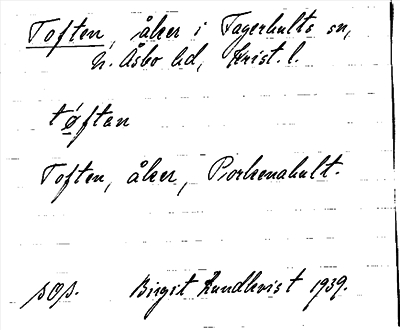 Toften, åker i Fagerhults sn,
N. Åsbo hd, Krist. l.
tǿftan
Toften, åker, Porkenahult.
sOp. Birgit Lundkvist 1939.